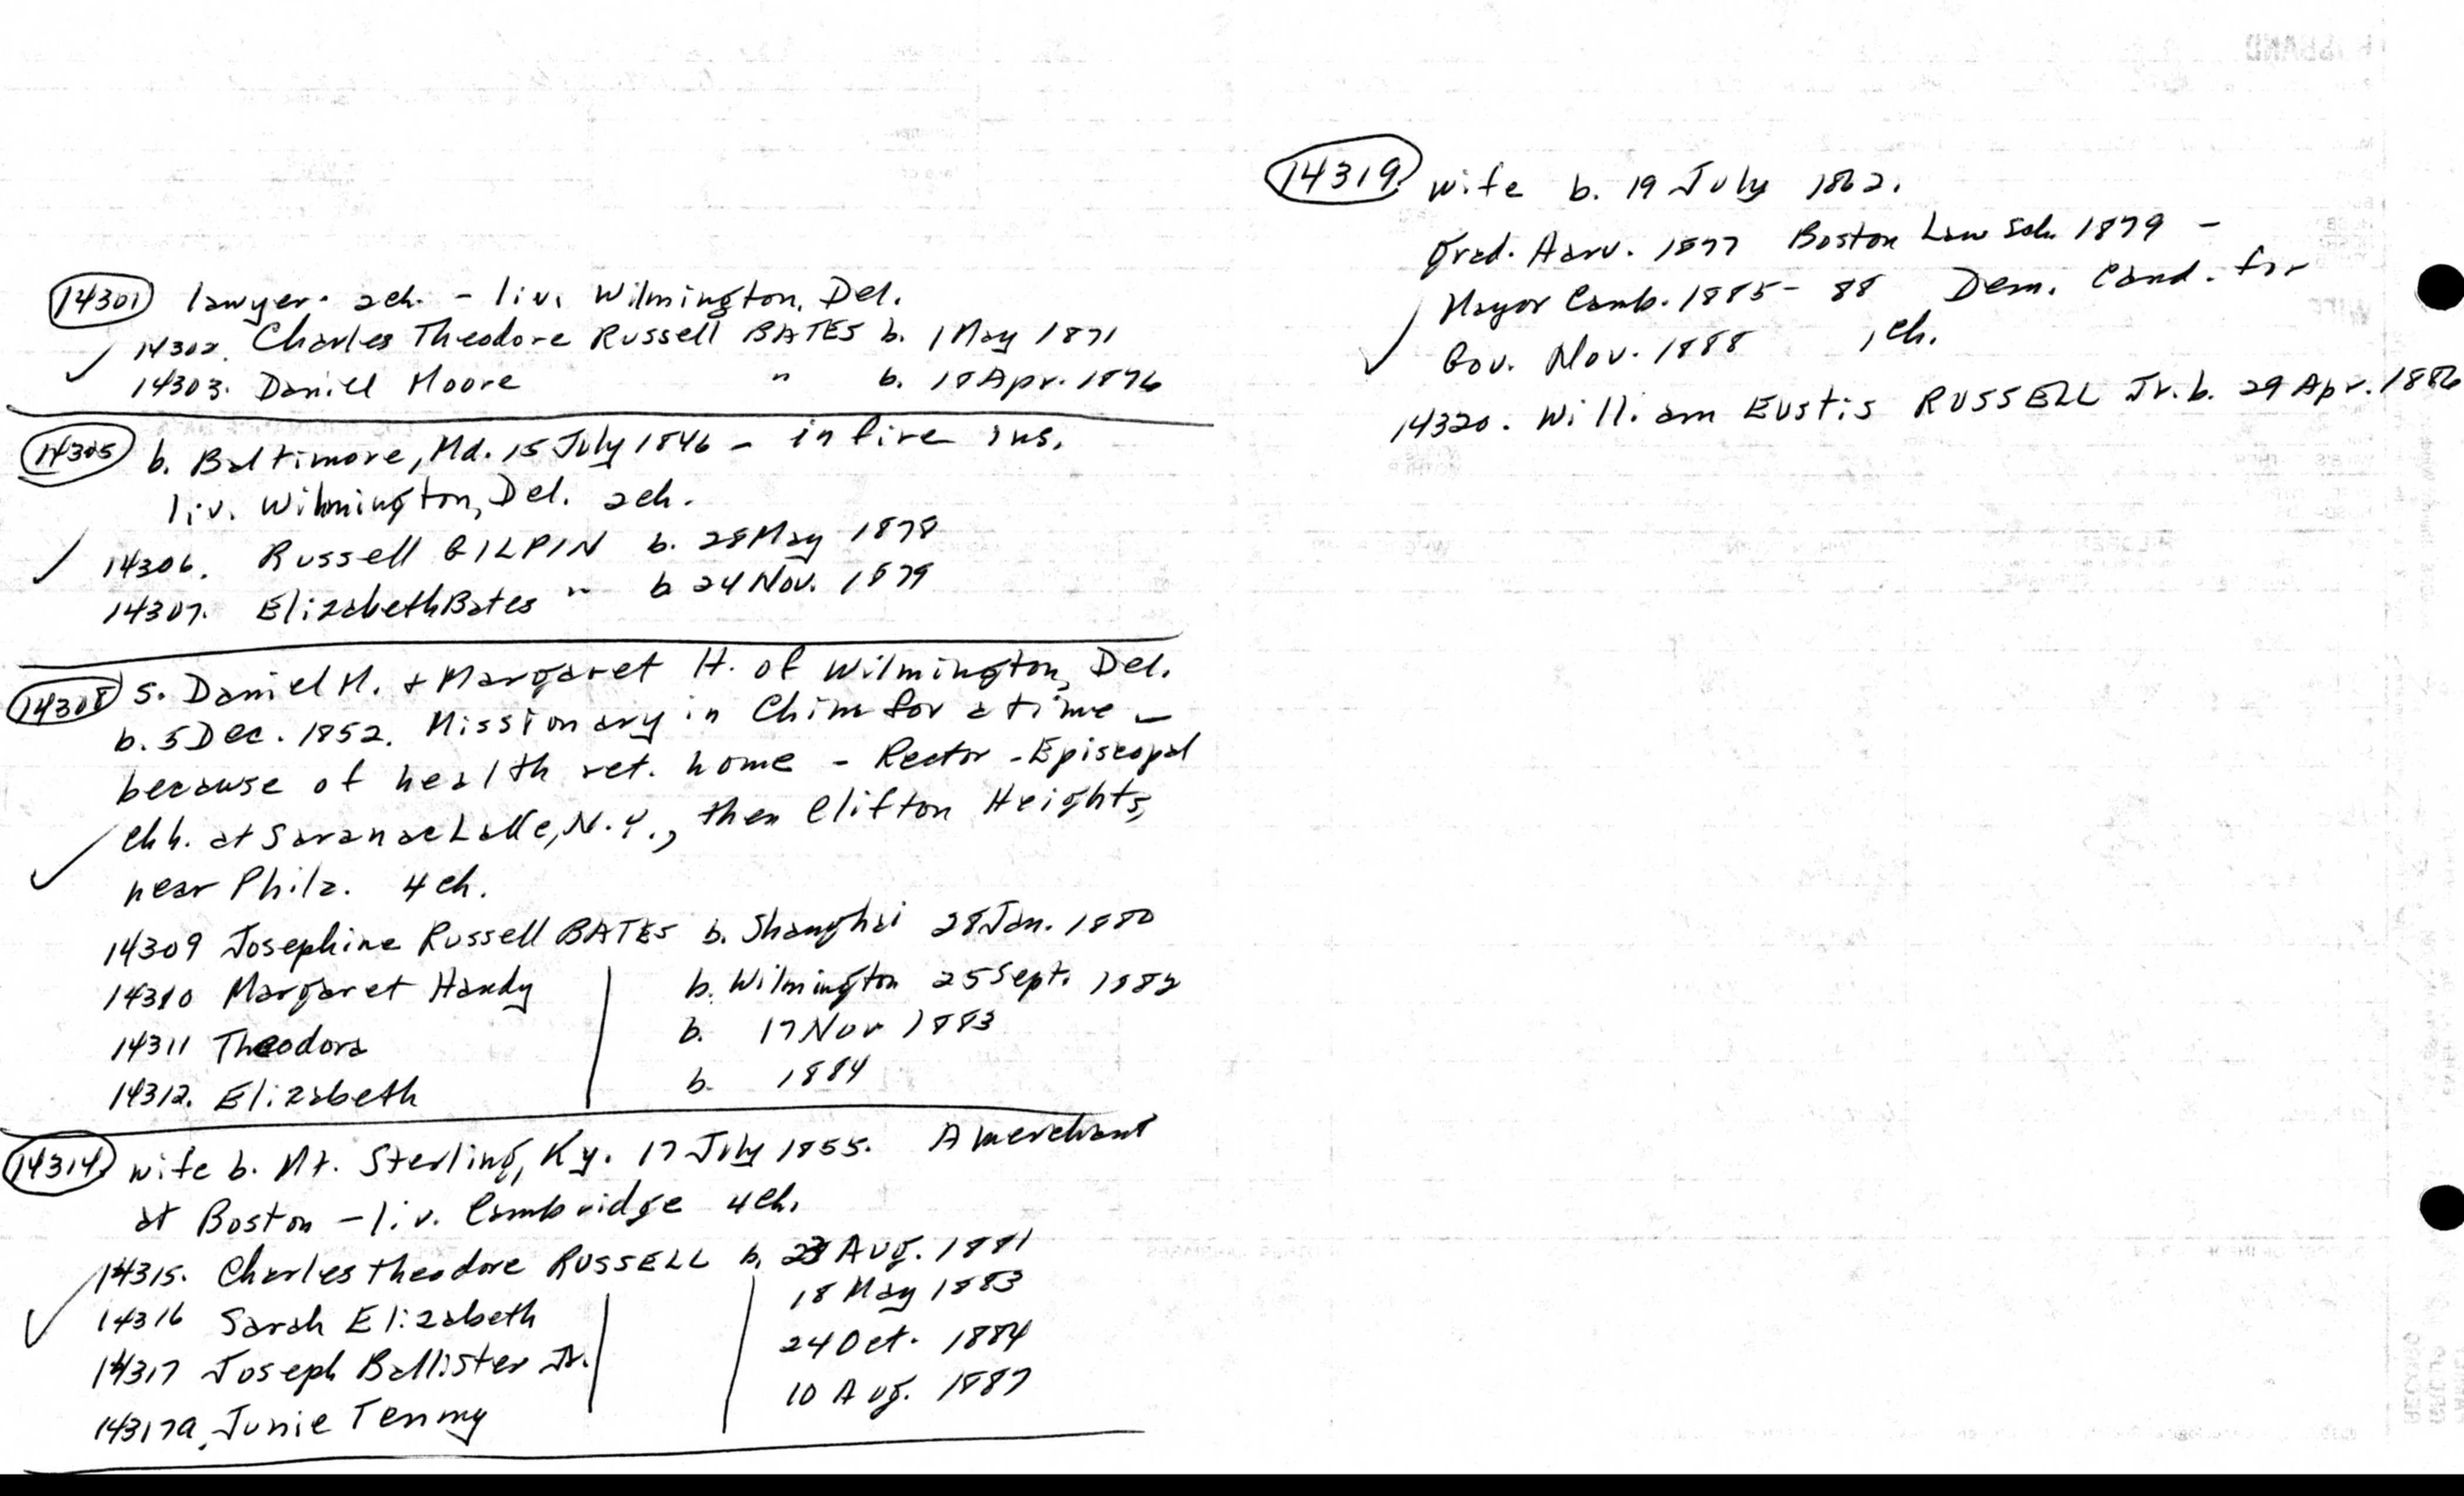 14301 lawyer. 2ch. - liv. Wilmington, Del.
14302. Charles Theodore Russell BATES b. 1 May 1871
14303. Daniel Moore " b. 18 Apr. 1876
14305 b. Baltimore, Md. 15 July 1846 - in fire ins.
liv. Wilmington, Del. 2ch.
14306. Russell GILPIN b. 28 May 1878
14307. Elizabeth Bates " b 24 Nov. 1879
14308 S. Daniel M. + Margaret H. of Wilmington, Del.
b. 5 Dec. 1852. Missionary in China for a time -
because of health ret. home - Rector - Episcopal
Chh. at Saranac Lake, N.Y., then Clifton Heights,
near Phila. 4 ch.
14309 Josephine Russell BATES b. Shanghai 28 Jan. 1880
14310 Margaret Handy b. Wilmington 25 Sept. 1882
14311 Theodora b. 17 Nov 1883
14312. Elizabeth b. 1884
14314 wife b. Mt. Sterling, Ky. 17 July 1855. A merchant
at Boston - liv. Cambridge 4ch.
14315. Charles Theodore RUSSELL b. 23 Aug. 1881
14316 Sarah Elizabeth 18 May 1883
14317 Joseph Ballister Jr. 24 Oct. 1884
14317a. Junie Tenny 10 Aug. 1887
14319 wife b. 19 July 1862.
Grad. Harv. 1877 Boston Law Sch. 1879 -
Mayor Camb. 1885-88 Dem. Cand. for
Gov. Nov. 1888 1 ch.
14320. William Eustis RUSSELL Jr. b. 29 Apr. 1886